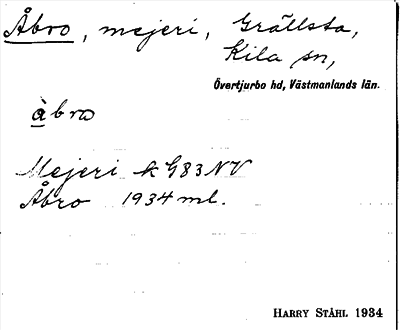 Åbro, mejeri, Grällsta,
Kila sn,
Övertjurbo hd, Västmanlands län.
åbro
Mejeri k G83NV
Åbro 1934 ml.
HARRY STÅHL 1934